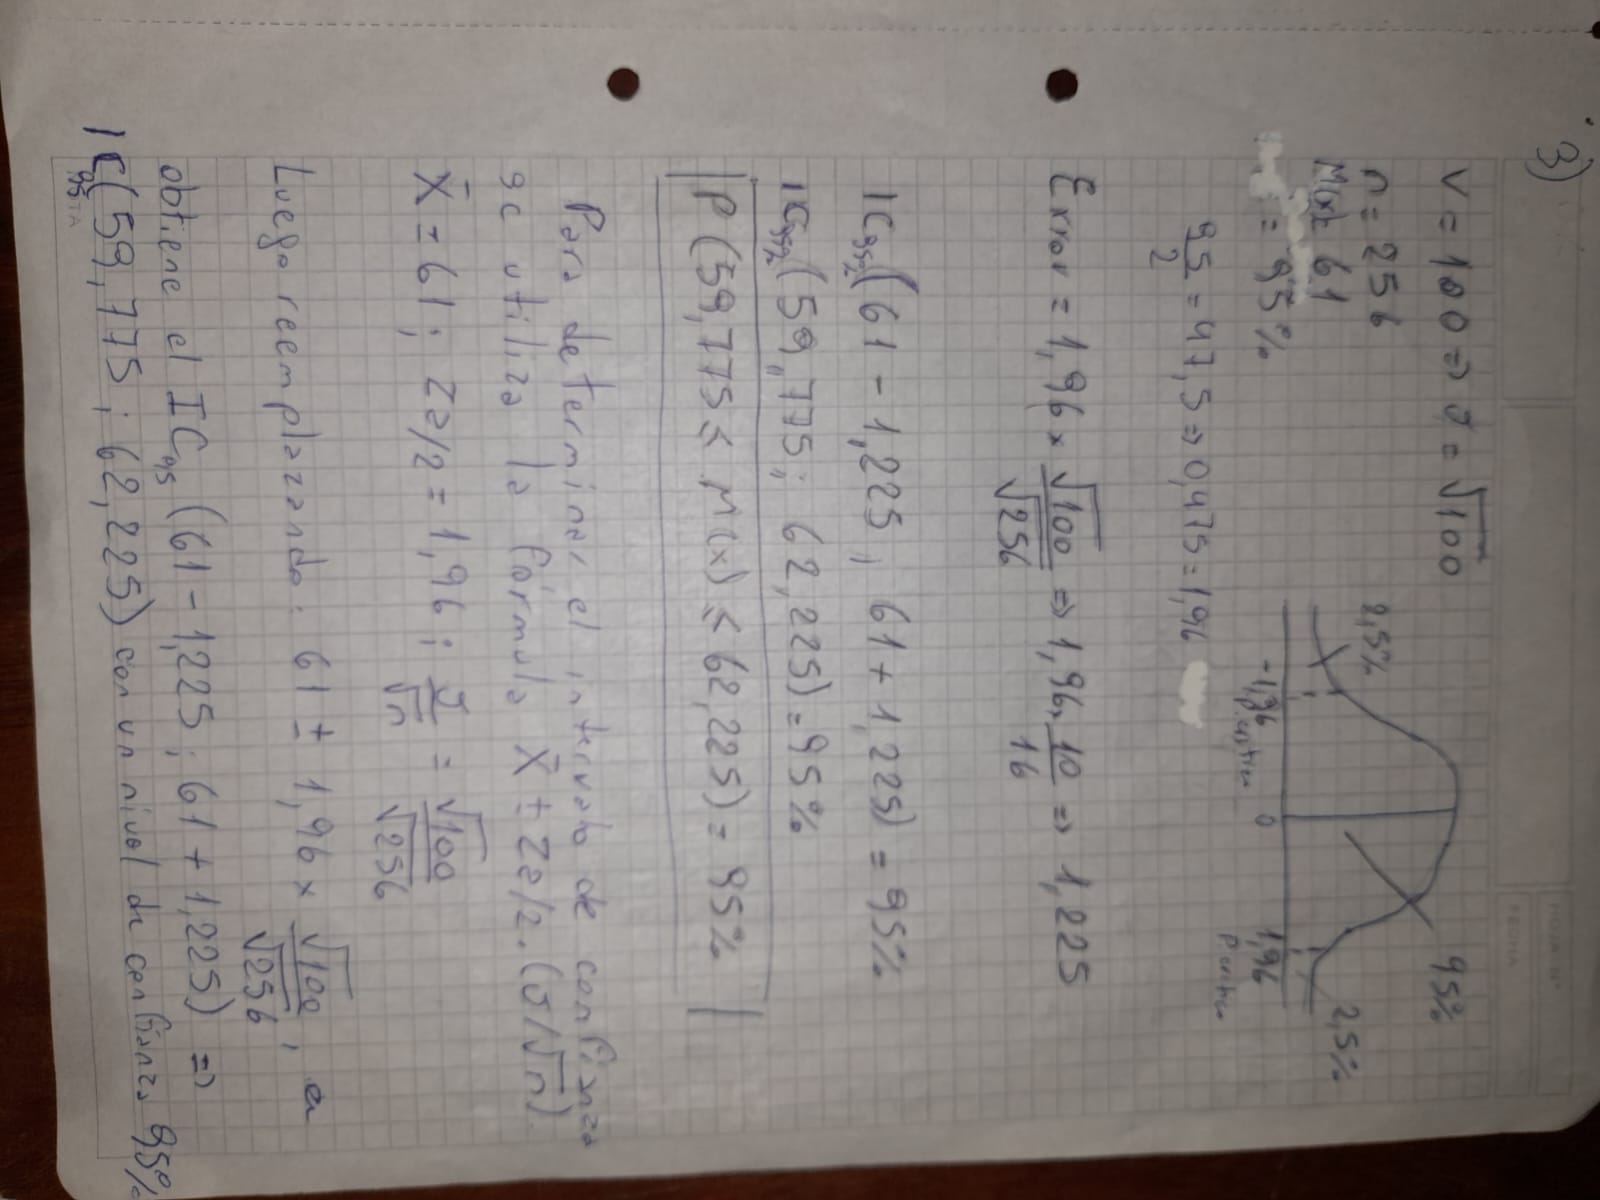 3)
HOJA N°
FECHA
V = 100 => σ = √100
n = 256
M(x) = 61
= 95%
95%
2,5%
2,5%
-1,96
0
1,96
P. critico
P. critico
95/2 = 47,5 => 0,475 = 1,96
Error = 1,96 × √100/√256 => 1,96 × 10/16 => 1,225
IC95%(61 - 1,225 ; 61 + 1,225) = 95%
IC95%(59,775 ; 62,225) = 95%
P(59,775 ≤ M(x) ≤ 62,225) = 95%
Para determinar el intervalo de confianza
se utiliza la fórmula X̄ ± Z2/2 . (σ/√n).
X̄ = 61 ; Z2/2 = 1,96 ; σ/√n = √100/√256
Luego reemplazando: 61 ± 1,96 × √100/√256 ,
obtiene el IC95 (61 - 1,225 ; 61 + 1,225) =>
IC95(59,775 ; 62,225) con un nivel de confianza 95%